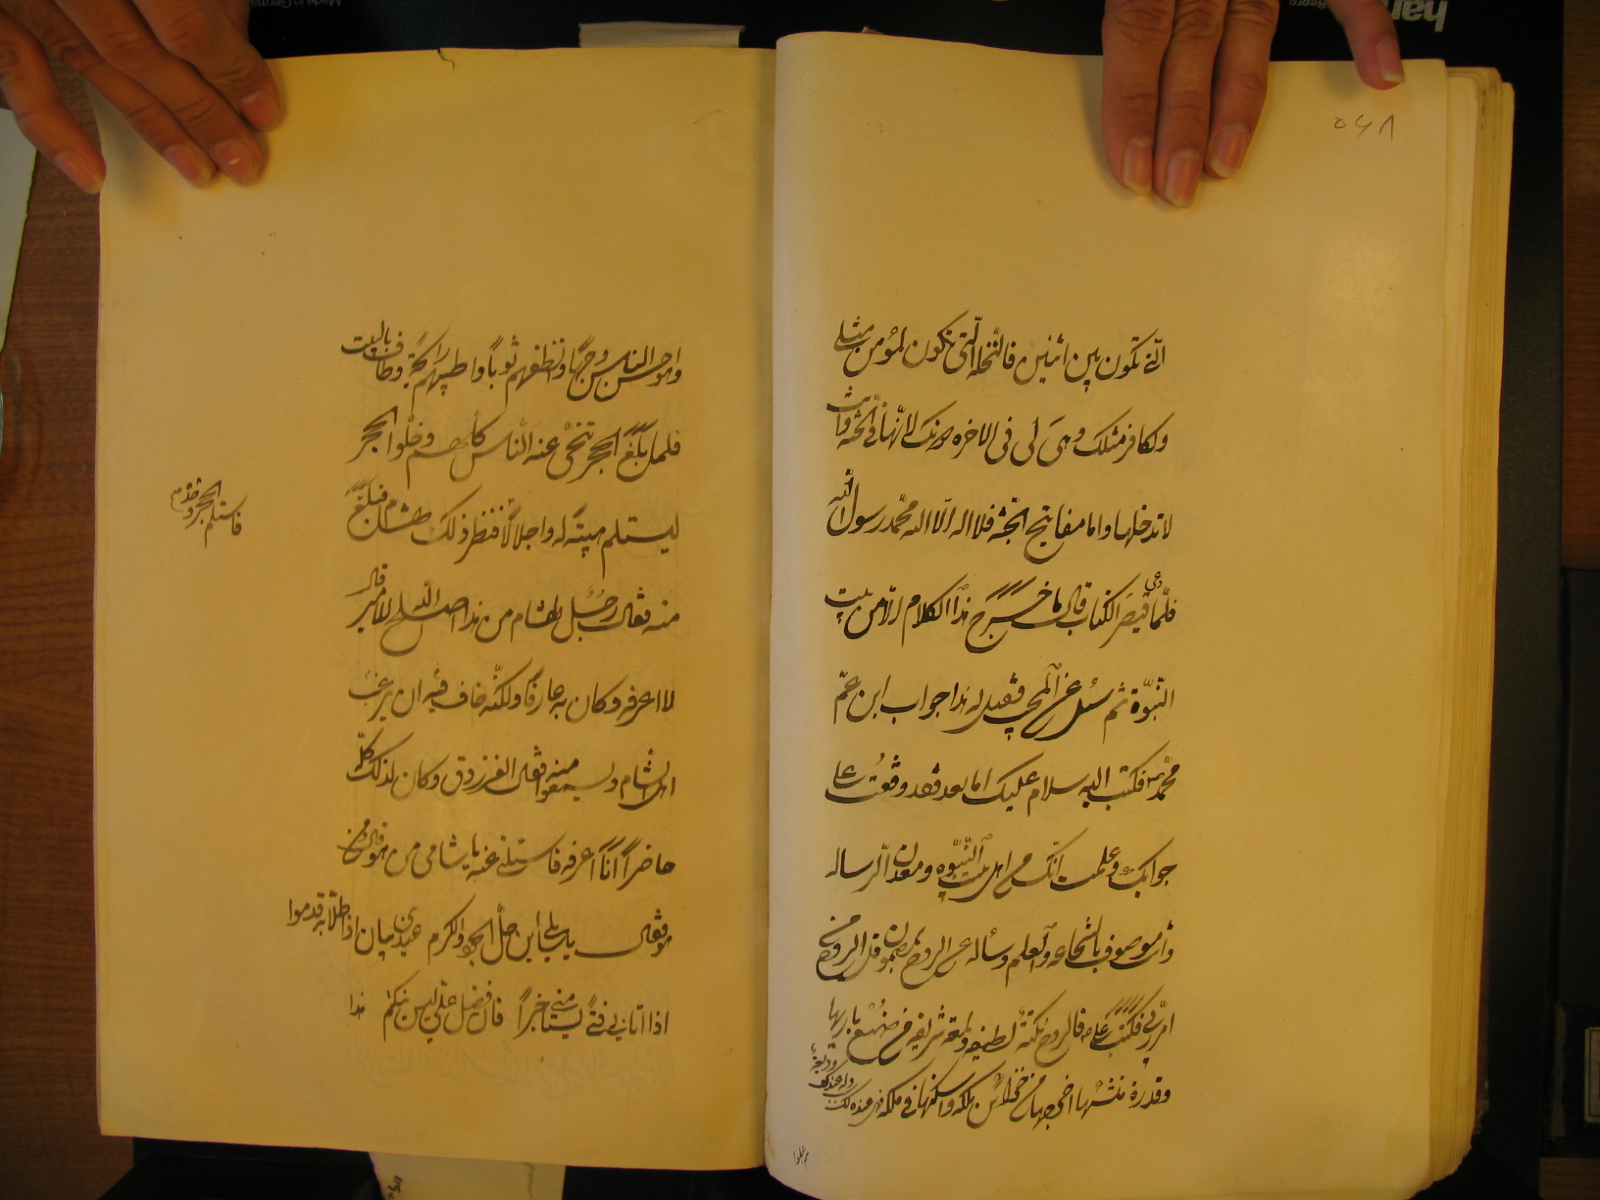 ۵۶۸
الّتی تکون بین اثنین فالنّخله الّتی تکون لمؤمن مثلی
ولکافر مثلک وهی لی فی الاخره دونک لانّها فی الجنّه وانت
لا تدخلها واما مفاتیح الجنّه فلا اله الّا الله محمّد رسول الله
فلمّا قیصر الکتاب قال ما خرج هذا الکلام الّا من بیت
النّبوّة ثم سئل عن المجیب فقیل له هذا جواب ابن عمّ
محمّد فکتب الیه سلام علیک اما بعد فقد وقفت علی
جوابک وعلمت انّک من اهل بیت النّبوّه ومعدن الرّساله
وانت موصوف بالشّجاعه والعلم
امر ربّی فکتب قال الروح نکتة لطیفه ولمعة شریفه من صنعة باریها
وقدرة منشئها اخرجها من خزائن ملکه واسکنها فی ملکه فهی عنده لک
وهو احسن النّاس وجهاً وانظفهم ثوباً واطیبهم رائحة وطاف بالبیت
فلما بلغ الحجر تنحّی عنه النّاس کلّهم وخلّوا الحجر
لیستلم هیبة له واجلالاً فنظر ذلک هشام فبلغ
فاستلم الحجر وحده
منه فقال رجل لهشام من هذا اصلح الله الامیر قال
لا اعرفه وکان به عارفاً ولکنّه خاف فیه ان یرغب
اهل الشّام ویسمعوا منه فقال الفرزدق وکان لذلک کلّه
حاضراً انا اعرفه فاسئلنی عنه یا شامی من هو قال من
هو فقال یا سائلی این حلّ الجود والکرم عندی بیان اذا طلّابه قدموا
اذا اتانی فتی یستامنی خبراً هذا